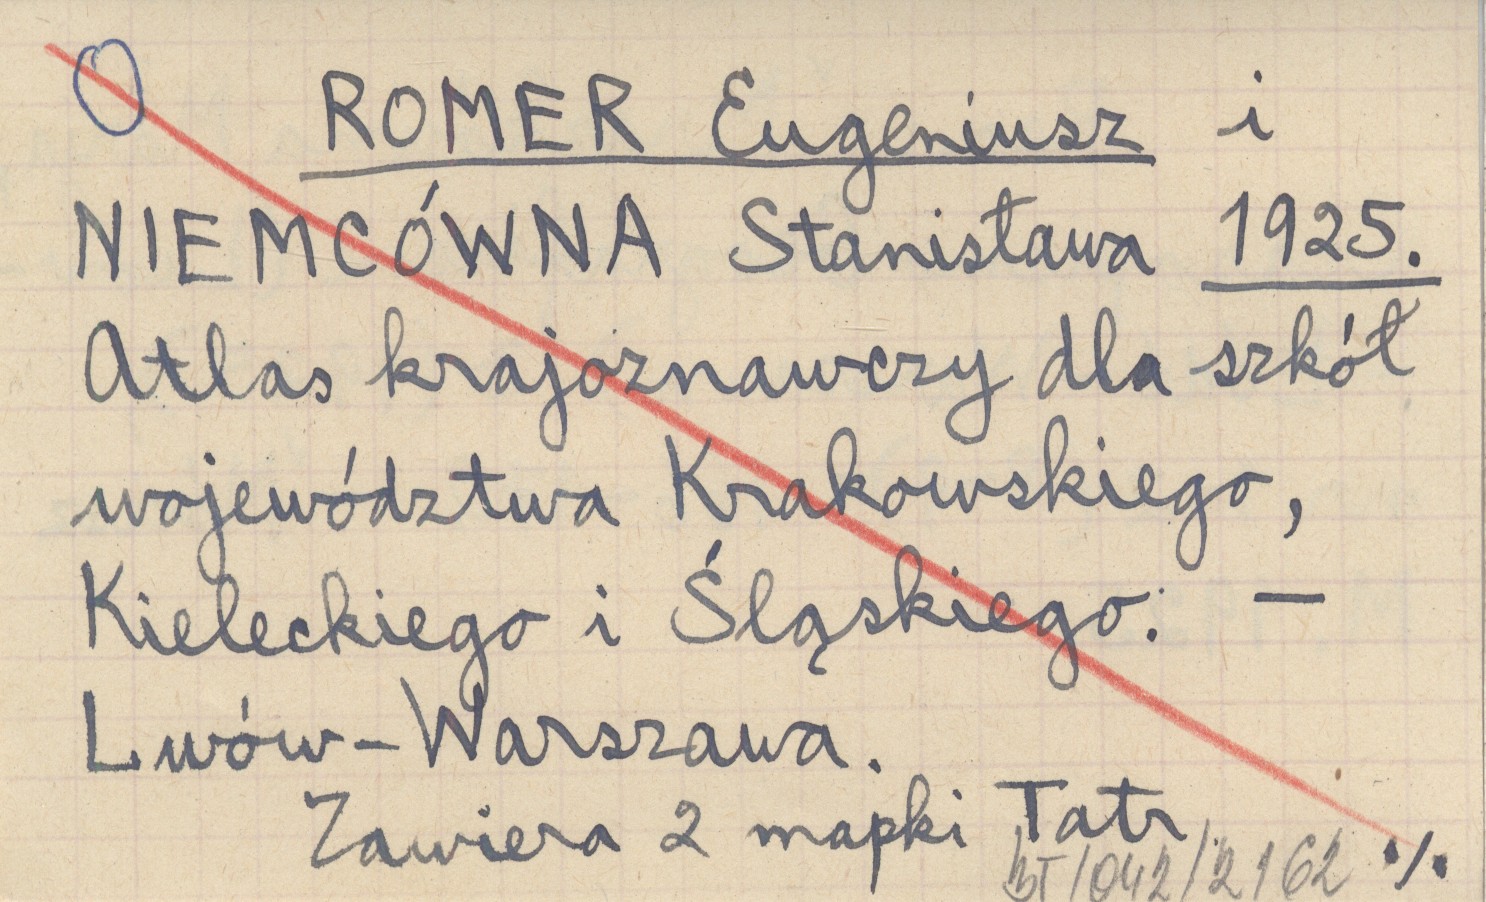 ROMER Eugeniusz i
NIEMCÓWNA Stanisława 1925.
Atlas krajoznawczy dla szkół
województwa Krakowskiego,
Kieleckiego i Śląskiego. –
Lwów-Warszawa.
Zawiera 2 mapki Tatr
BT/042/2162 ./.